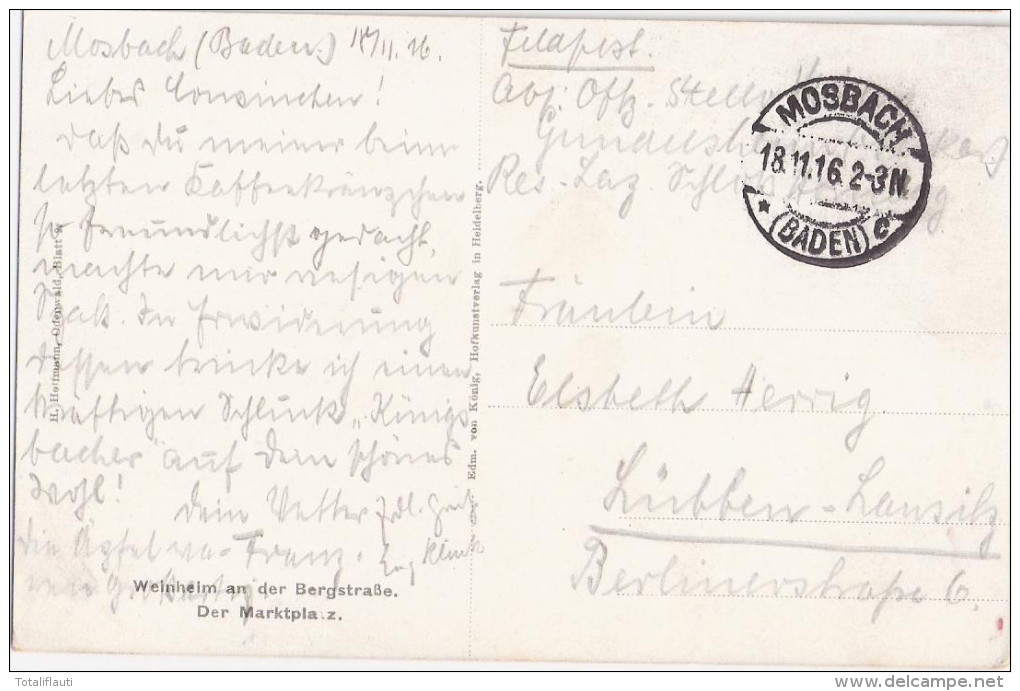 Mosbach (Baden.) 18/11.16.
Liebes Cousinchen!
Daß Du meiner beim
letzten Kaffeekränzchen
so freundlichst gedacht,
machte mir riesigen
Spaß. In Erwiderung
dessen trinke ich einen
kräftigen Schluck „Königs
bacher auf dein schönes
Wohl!
Dein Vetter
Franz.
die Äpfel
Weinheim an der Bergstraße.
Der Marktplatz.
H. Hoffmann, Odenwald, Blatt
Edm. von König, Hofkunstverlag in Heidelberg.
Feldpost.
Abs: Offz. Stellv.
Res. Laz. Schloß
MOSBACH
18.11.16. 2-3 N.
* (BADEN) c
Fräulein
Elsbeth Herrig
Lübben-Lausitz
Berlinerstraße 6.
Totaliflauti
www.delcampe.net